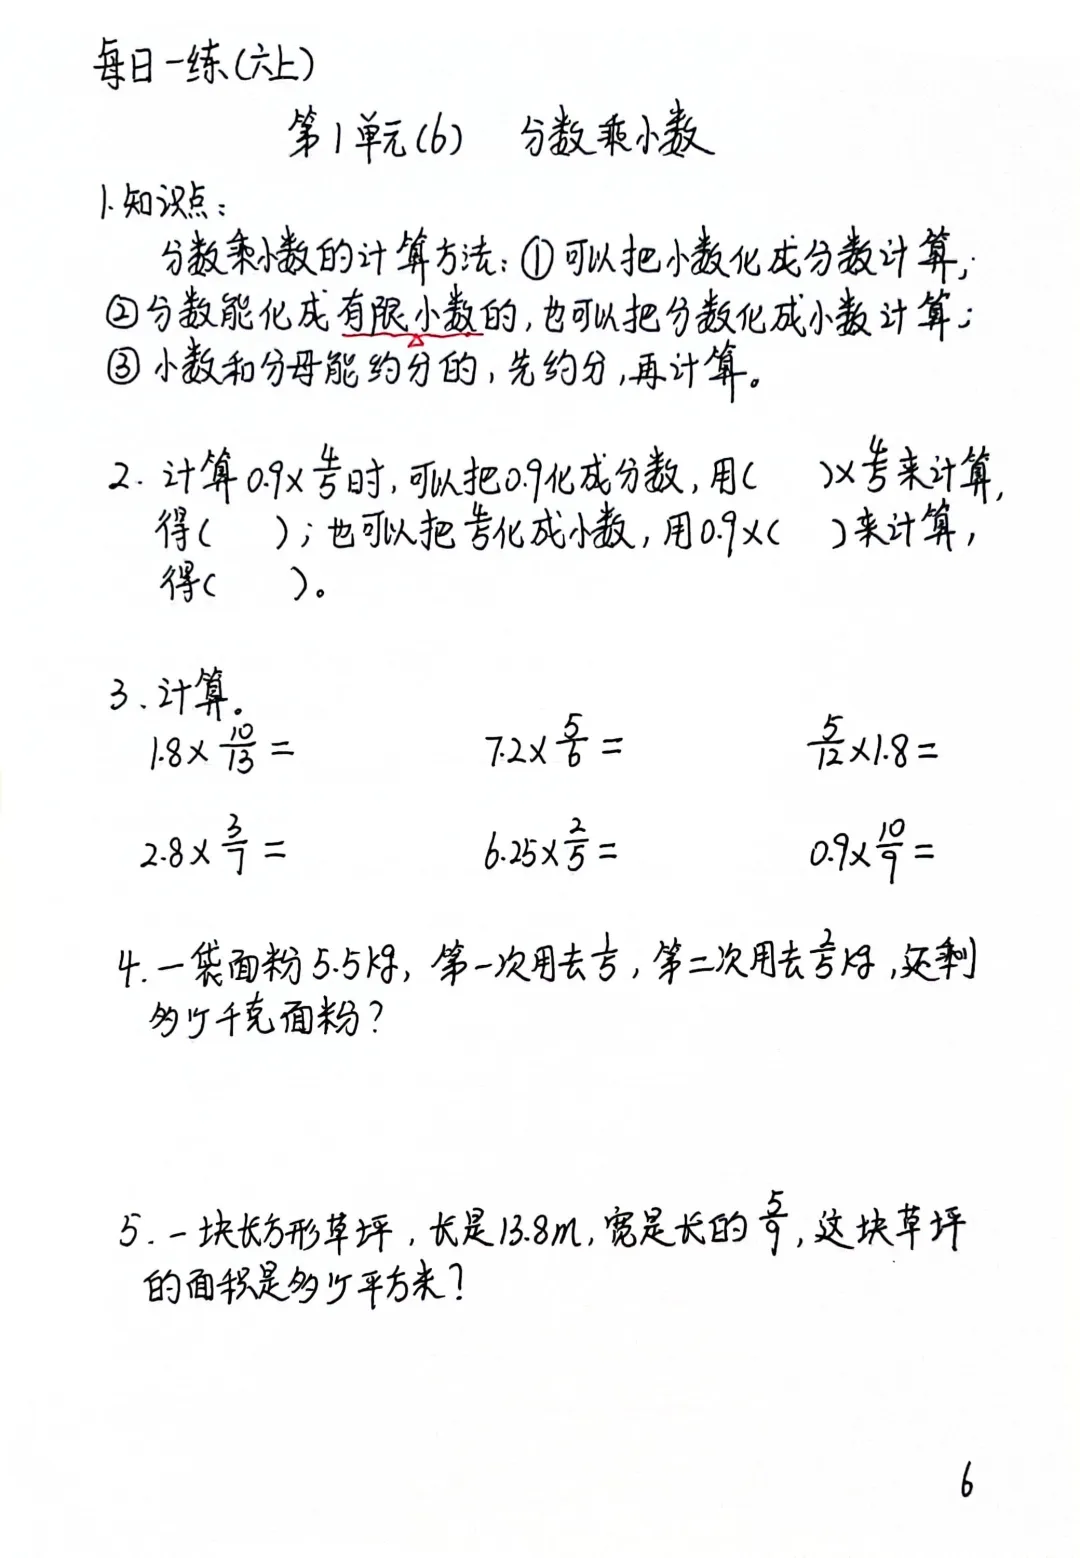 每日一练(六上)
第1单元(6) 分数乘小数
1.知识点:
分数乘小数的计算方法:①可以把小数化成分数计算;
②分数能化成有限小数的,也可以把分数化成小数计算;
③小数和分母能约分的,先约分,再计算。
2.计算0.9×4/5时,可以把0.9化成分数,用( )×4/5来计算,
得( );也可以把4/5化成小数,用0.9×( )来计算,
得( )。
3.计算。
1.8×10/13= 7.2×5/6= 5/12×1.8=
2.8×3/7= 6.25×2/5= 0.9×10/9=
4.一袋面粉5.5kg,第一次用去1/5,第二次用去2/5kg,还剩
多少千克面粉?
5.一块长方形草坪,长是13.8m,宽是长的5/9,这块草坪
的面积是多少平方米?
6